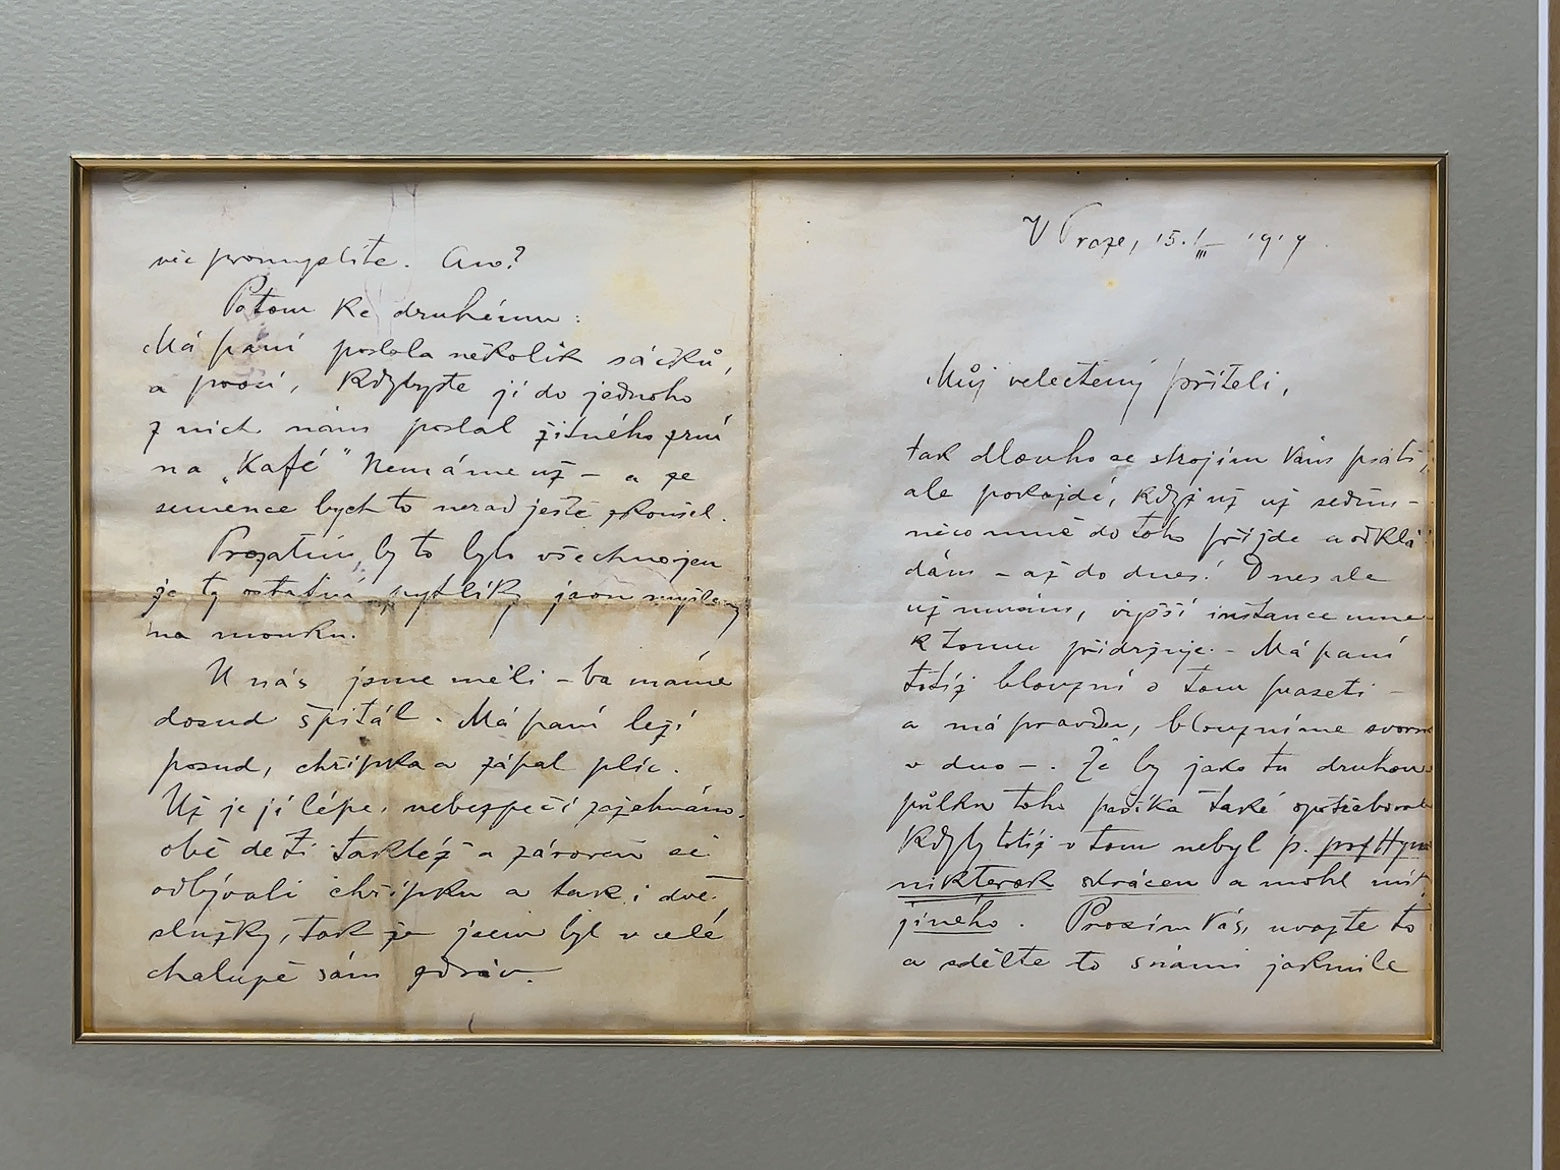 V Praze, 15./III 1919
Můj velectěný příteli,
tak dlouho se strojím Vám psáti,
ale pokaždé, když už už sedím –
něco mně do toho přijde a odklá
dám – až do dnes! Dnes ale
už musím, vyšší instance mne
k tomu přidržuje. – Má paní
totiž blouzní o tom praseti –
a má pravdu, blouzníme svorně
v duo –. Že by jako tu druhou
půlku toho pašíka také spotřeboval
kdyby totiž v tom nebyl p. prof Hýn
nikterak zkrácen a mohl mít
jiného. Prosím Vás, uvažte to
a sdělte to s námi jakmile
věc promyslíte. Ano?
Potom ke druhému:
Má paní poslala několik sáčků,
a prosí, kdybyste jí do jednoho
z nich nám poslal žitného zrní
na „Kafé" Nemáme už – a ze
semence bych to nerad ještě zkoušel.
Prozatím by to bylo všechno jen
že ty ostatní pytlíky jsou myšleny
na mouku.
U nás jsme měli – ba máme
dosud špitál. Má paní leží
posud, chřipka a zápal plic.
Už je jí lépe, nebezpečí zažehnáno.
obě děti taktéž a zároveň si
odbývali chřipku a tak i dvě
služky, tak že jsem byl v celé
chalupě sám zdráv.